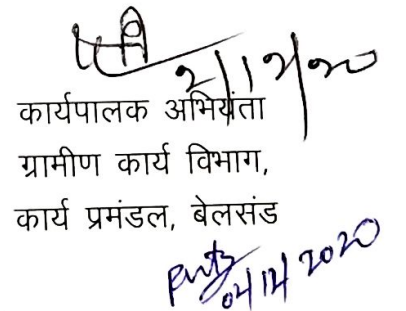 2/12/20
कार्यपालक अभियंता
ग्रामीण कार्य विभाग,
कार्य प्रमंडल, बेलसंड
04/12/2020